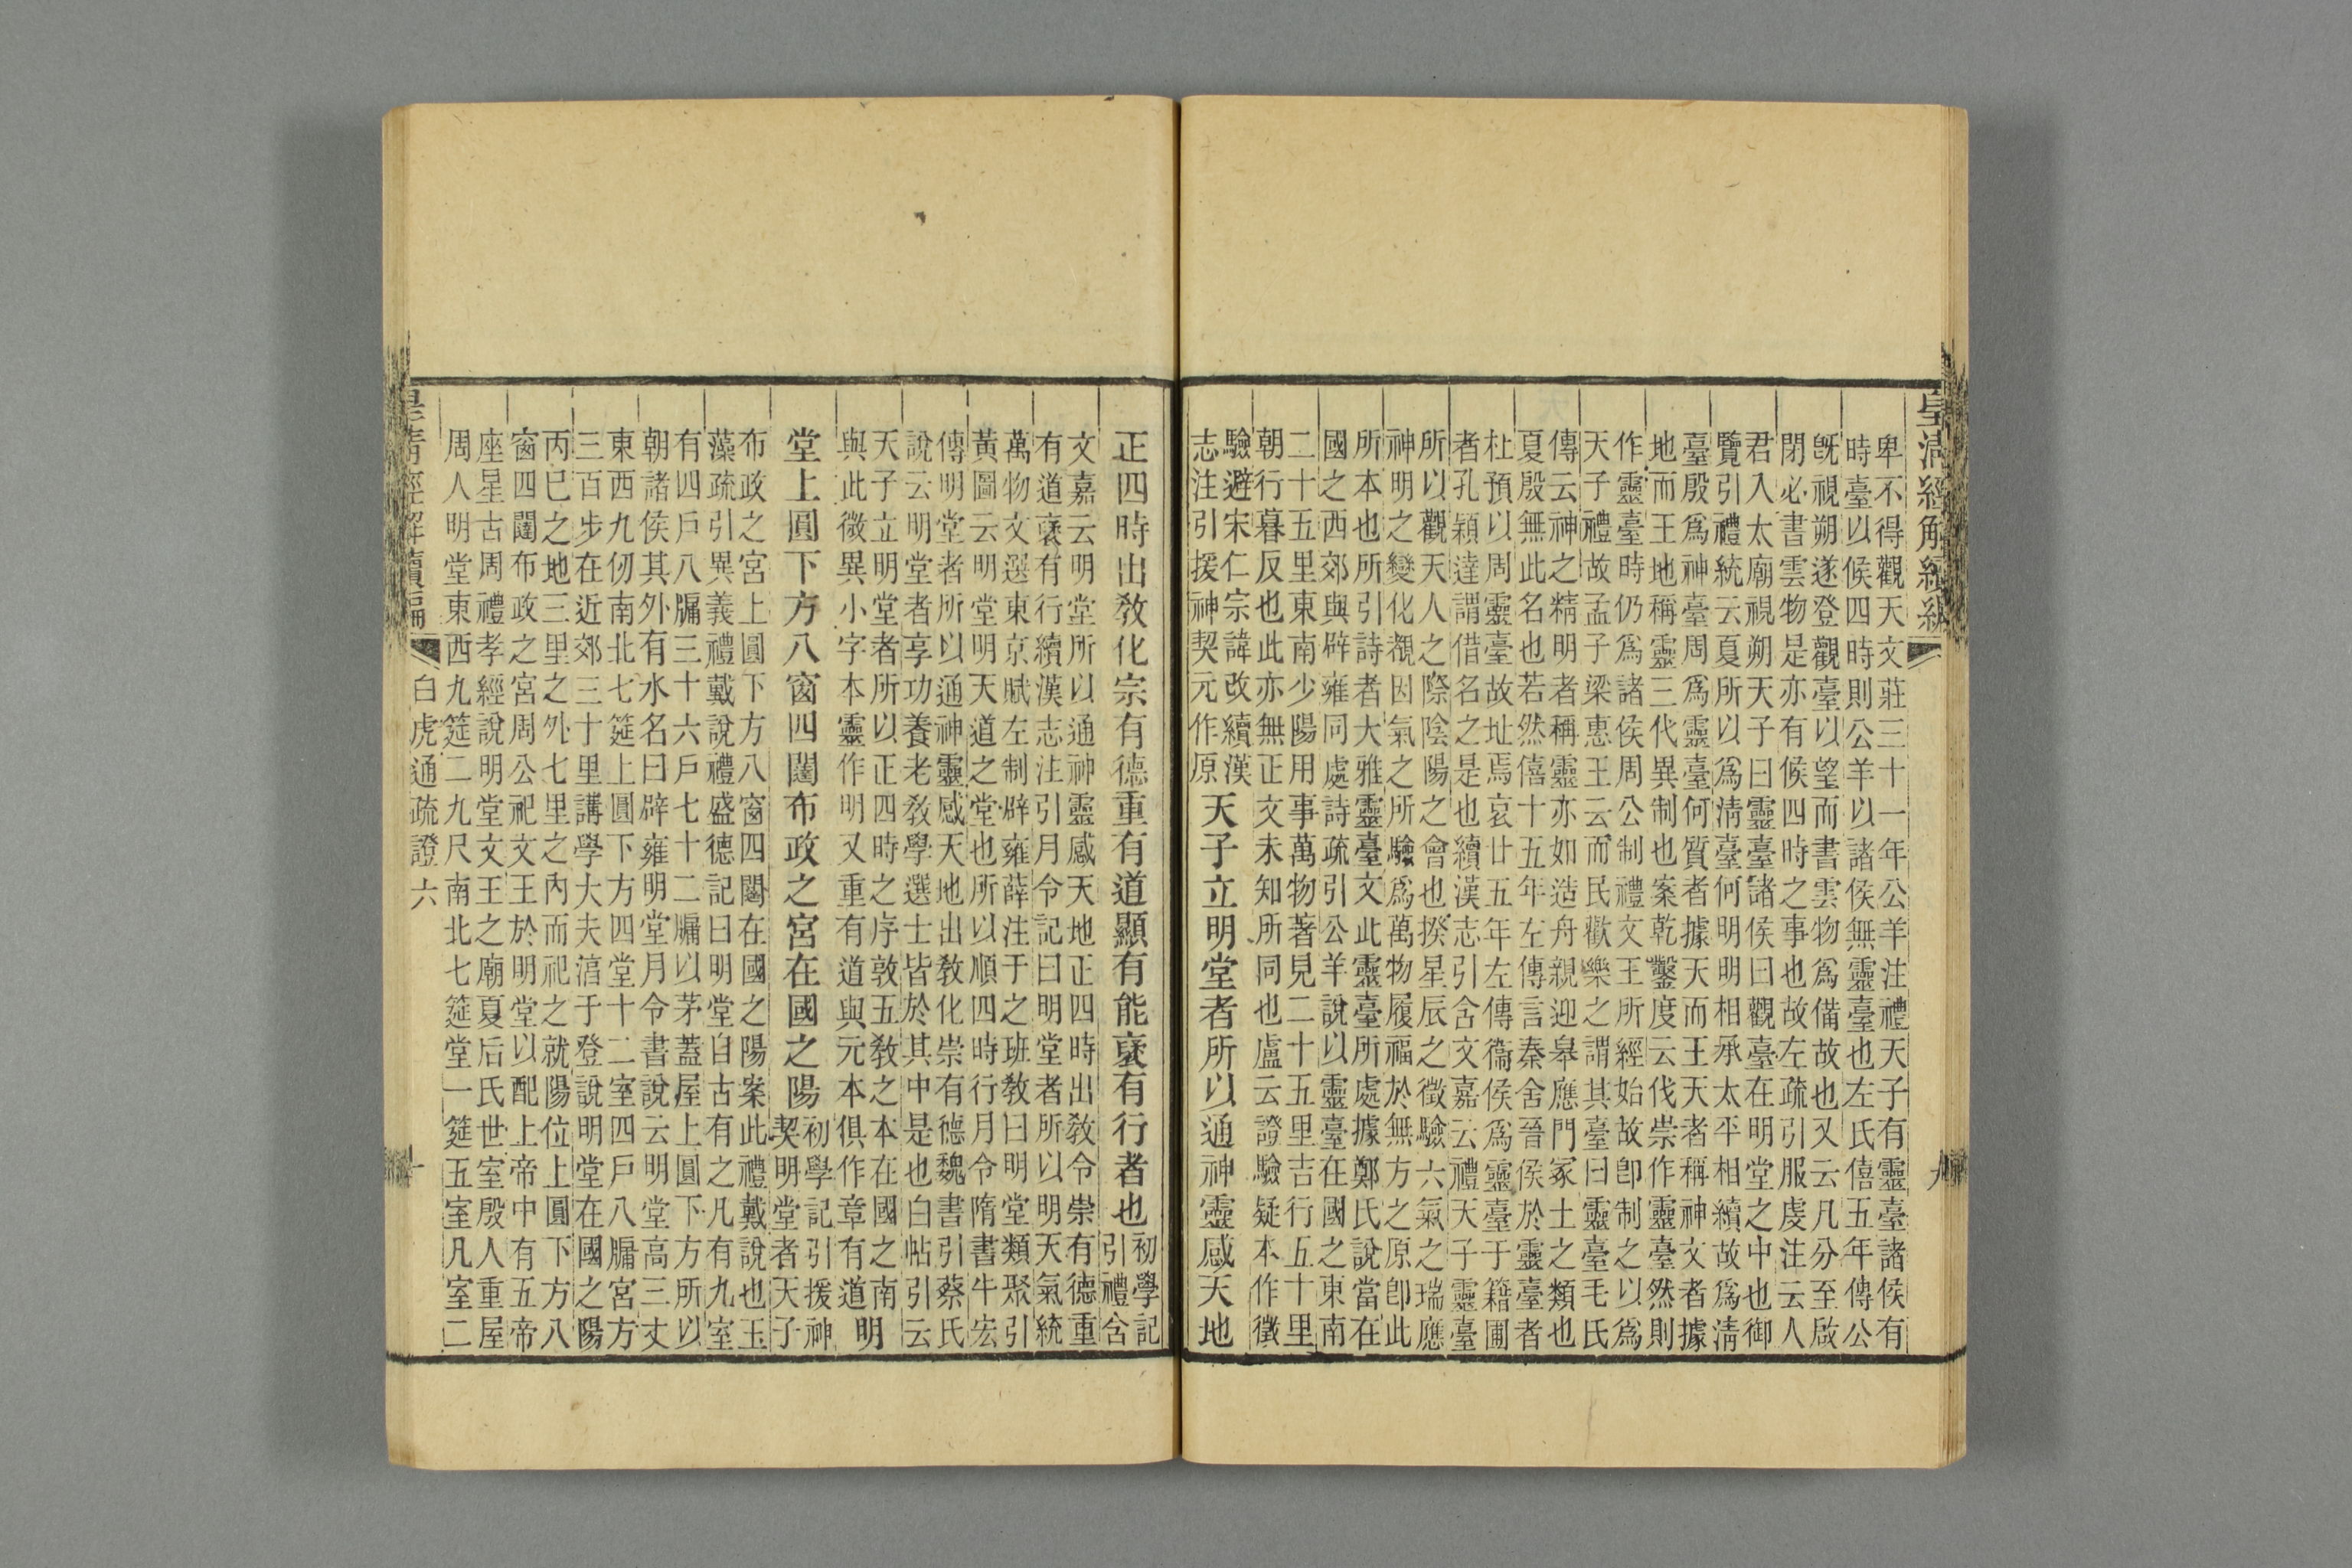 皇清經解續編
卑不得觀天文莊三十一年公羊注禮天子有靈臺諸侯有
時臺以候四時則公羊以諸侯無靈臺也左氏僖五年傳公
旣視朔遂登觀臺以望而書雲物爲備故也又云凡分至啟
閉必書雲物是亦有候四時之事也故左疏引服虔注云人
君入太廟視朔天子曰靈臺諸侯曰觀臺在明堂之中也御
覽引禮統云夏所以爲淸臺何明明相承太平相續故爲淸
臺殷爲神臺周爲靈臺何質者據天而王天者稱神文者據
地而王地稱靈三代異制也案乾鑿度云伐崇作靈臺然則
作靈臺時仍爲諸侯周公制禮文王所經始故卽制之以爲
天子禮故孟子梁惠王云而民歡樂之謂其臺曰靈臺毛氏
傳云神之精明者稱靈亦如造舟親迎皋應門冢土之類也
夏殷無此名也若然僖十五年左傳言秦舍晉侯於靈臺者
杜預以周靈臺故址焉哀廿五年左傳衞侯爲靈臺于籍圃
者孔穎達謂借名之是也續漢志引含文嘉云禮天子靈臺
所以觀天人之際陰陽之會也揆星辰之徵驗六氣之瑞應
神明之變化覩因氣之所驗爲萬物履福於無方之原卽此
所本也所引詩者大雅靈臺文此靈臺所處據鄭氏說當在
國之西郊與辟雍同處詩疏引公羊說以靈臺在國之東南
二十五里東南少陽用事萬物著見二十五里吉行五十里
朝行暮反也此亦無正文未知所同也盧云證驗疑本作徵
驗避宋仁宗諱改續漢
志注引援神契元作原
天子立明堂者所以通神靈感天地
正四時出敎化宗有德重有道顯有能襃有行者也
初學記
引禮含
文嘉云明堂所以通神靈感天地正四時出敎令崇有德重
有道襃有行續漢志注引月令記曰明堂者所以明天氣統
萬物文選東京賦左制辟雍薛注于之班敎曰明堂類聚引
黃圖云明堂明天道之堂也所以順四時行月令隋書牛宏
傳明堂者所以通神靈感天地出敎化崇有德魏書引蔡氏
說云明堂者享功養老敎學選士皆於其中是也白帖引云
天子立明堂者所以正四時之序敦五敎之本在國之南
與此微異小字本靈作明又重有道與元本俱作章有道
明
堂上圓下方八窗四闥布政之宮在國之陽
初學記引援神
契明堂者天子
布政之宮上圓下方八窗四闥在國之陽案此禮戴說也玉
藻疏引異義禮戴說禮盛德記曰明堂自古有之凡有九室
有四戶八牖三十六戶七十二牖以茅蓋屋上圓下方所以
朝諸侯其外有水名曰辟雍明堂月令書說云明堂高三丈
東西九仞南北七筵上圓下方四堂十二室四戶八牖宮方
三百步在近郊三十里講學大夫湻于登說明堂在國之陽
丙巳之地三里之外七里之內而祀之就陽位上圓下方八
窗四闥布政之宮周公祀文王於明堂以配上帝中有五帝
座星古周禮孝經說明堂文王之廟夏后氏世室殷人重屋
周人明堂東西九筵二九尺南北七筵堂一筵五室凡室二
皇清經解續編 白虎通疏證六